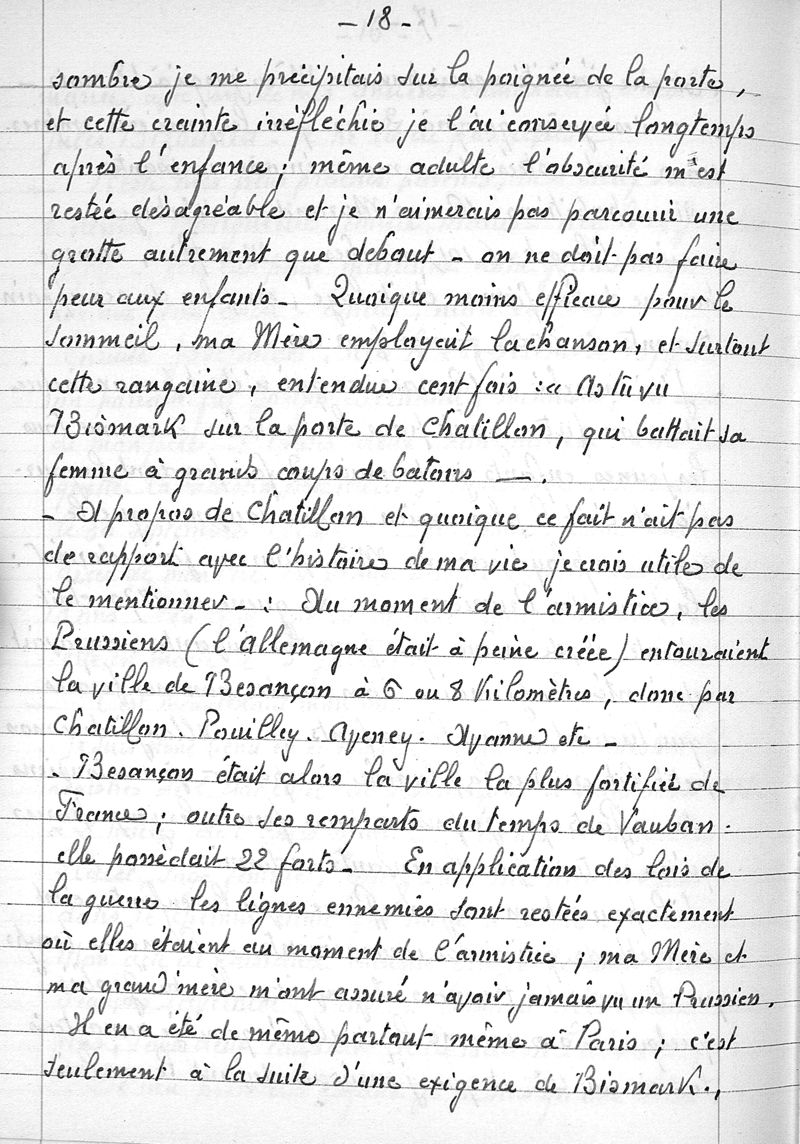 - 18 -
sombre je me précipitais sur la poignée de la porte,
et cette crainte irréfléchie je l'ai conservée longtemps
après l'enfance ; même adulte l'obscurité m'est
restée désagréable et je n'aimerais pas parcourir une
grotte autrement que debout - on ne doit pas faire
peur aux enfants - Quoique moins efficace pour le
sommeil, ma Mère employait la chanson, et surtout
cette rangaine, entendue cent fois : « As tu vu
Bismark sur la porte de Chatillon, qui battait sa
femme à grands coups de batons — .
- A propos de Chatillon et quoique ce fait n'ait pas
de rapport avec l'histoire de ma vie je crois utile de
le mentionner - : Au moment de l'armistice, les
Prussiens (l'allemagne était à peine créée) entouraient
la ville de Besançon à 6 ou 8 Kilomètres, donc par
Chatillon. Pouilley. Aveney. Avanne etc -
- Besançon était alors la ville la plus fortifiée de
France ; outre ses remparts du temps de Vauban -
elle possèdait 22 forts - En application des lois de
la guerre les lignes ennemies sont restées exactement
où elles étaient au moment de l'armistice ; ma Mère et
ma grand'mère m'ont assuré n'avoir jamais vu un Prussien.
Il en a été de même partout même à Paris ; c'est
seulement à la suite d'une exigence de Bismark.,